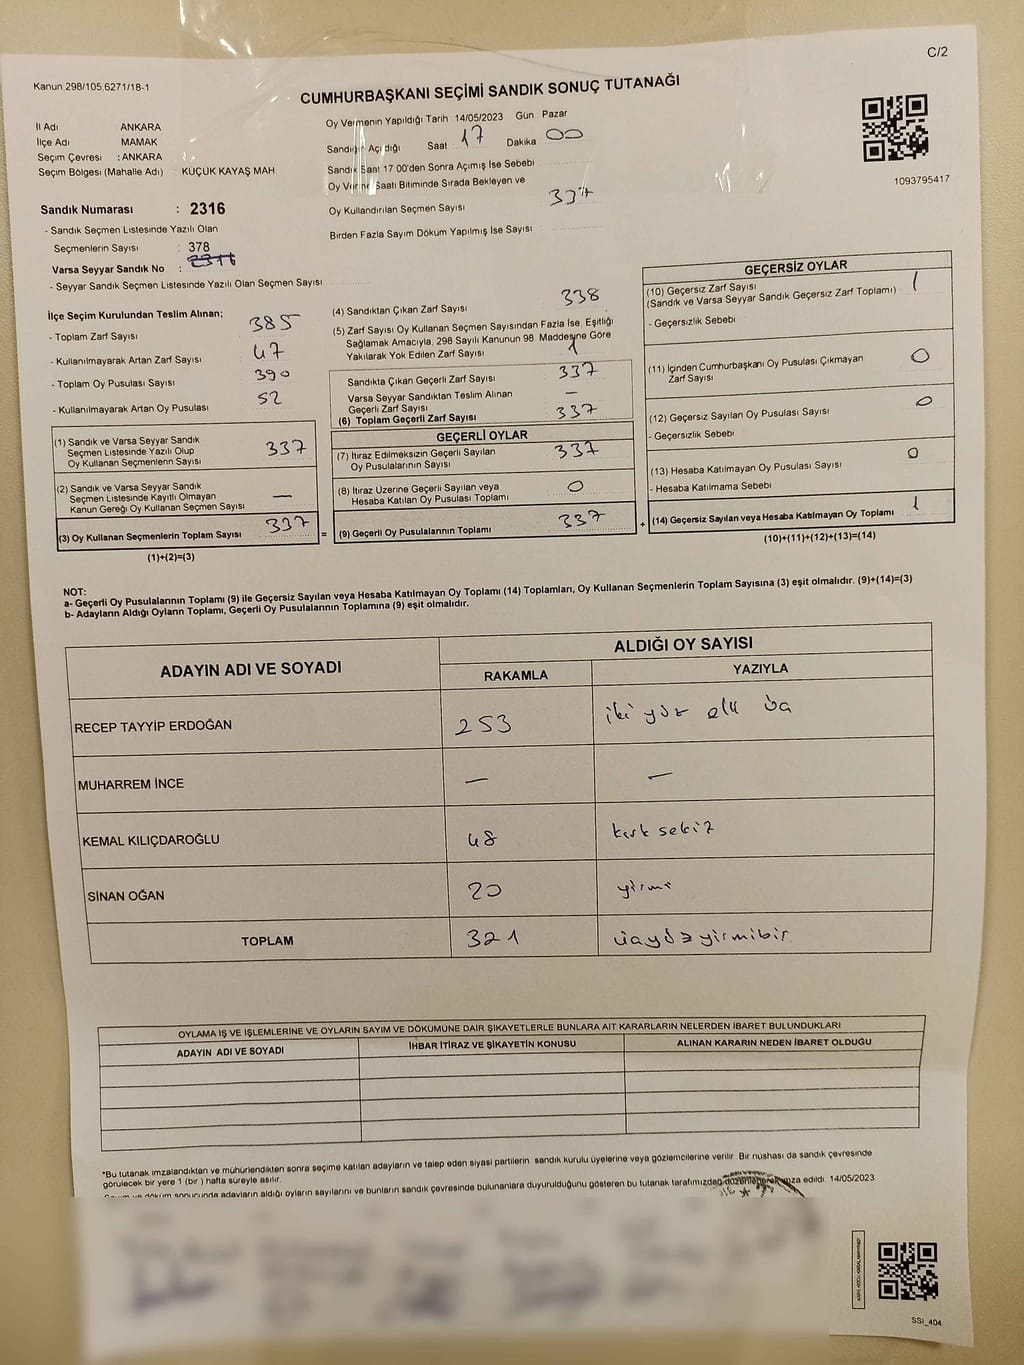 C/2
Kanun 298/105,6271/18-1
CUMHURBAŞKANI SEÇİMİ SANDIK SONUÇ TUTANAĞI
İl Adı ANKARA
İlçe Adı MAMAK
Seçim Çevresi : ANKARA
Seçim Bölgesi (Mahalle Adı) KÜÇÜK KAYAŞ MAH.
Oy Vermenin Yapıldığı Tarih 14/05/2023 Gün Pazar
Sandığın Açıldığı Saat 17 Dakika 00
Sandık Saat 17:00'den Sonra Açımış İse Sebebi
Oy Verme Saati Bitiminde Sırada Bekleyen ve
Oy Kullandırılan Seçmen Sayısı 337
Birden Fazla Sayım Döküm Yapılmış İse Sayısı
1093795417
Sandık Numarası : 2316
- Sandık Seçmen Listesinde Yazılı Olan
Seçmenlerin Sayısı : 378
Varsa Seyyar Sandık No : 2316
- Seyyar Sandık Seçmen Listesinde Yazılı Olan Seçmen Sayısı
İlçe Seçim Kurulundan Teslim Alınan;
- Toplam Zarf Sayısı 385
- Kullanılmayarak Artan Zarf Sayısı 47
- Toplam Oy Pusulası Sayısı 390
- Kullanılmayarak Artan Oy Pusulası 52
(1) Sandık ve Varsa Seyyar Sandık
Seçmen Listesinde Yazılı Olup
Oy Kullanan Seçmenlerin Sayısı 337
(2) Sandık ve Varsa Seyyar Sandık
Seçmen Listesinde Kayıtlı Olmayan
Kanun Gereği Oy Kullanan Seçmen Sayısı —
(3) Oy Kullanan Seçmenlerin Toplam Sayısı 337
(1)+(2)=(3)
=
(4) Sandıktan Çıkan Zarf Sayısı 338
(5) Zarf Sayısı Oy Kullanan Seçmen Sayısından Fazla İse, Eşitliği
Sağlamak Amacıyla, 298 Sayılı Kanunun 98. Maddesine Göre
Yakılarak Yok Edilen Zarf Sayısı 1
Sandıkta Çıkan Geçerli Zarf Sayısı 337
Varsa Seyyar Sandıktan Teslim Alınan
Geçerli Zarf Sayısı —
(6) Toplam Geçerli Zarf Sayısı 337
GEÇERLİ OYLAR
(7) İtiraz Edilmeksizin Geçerli Sayılan
Oy Pusulalarının Sayısı 337
(8) İtiraz Üzerine Geçerli Sayılan veya
Hesaba Katılan Oy Pusulası Toplamı 0
(9) Geçerli Oy Pusulalarının Toplamı 337
+
GEÇERSİZ OYLAR
(10) Geçersiz Zarf Sayısı 1
(Sandık ve Varsa Seyyar Sandık Geçersiz Zarf Toplamı)
- Geçersizlik Sebebi
(11) İçinden Cumhurbaşkanı Oy Pusulası Çıkmayan
Zarf Sayısı 0
(12) Geçersiz Sayılan Oy Pusulası Sayısı 0
- Geçersizlik Sebebi
(13) Hesaba Katılmayan Oy Pusulası Sayısı 0
- Hesaba Katılmama Sebebi
(14) Geçersiz Sayılan veya Hesaba Katılmayan Oy Toplamı 1
(10)+(11)+(12)+(13)=(14)
NOT:
a- Geçerli Oy Pusulalarının Toplamı (9) ile Geçersiz Sayılan veya Hesaba Katılmayan Oy Toplamı (14) Toplamları, Oy Kullanan Seçmenlerin Toplam Sayısına (3) eşit olmalıdır. (9)+(14)=(3)
b- Adayların Aldığı Oyların Toplamı, Geçerli Oy Pusulalarının Toplamına (9) eşit olmalıdır.
ADAYIN ADI VE SOYADI ALDIĞI OY SAYISI
RAKAMLA YAZIYLA
RECEP TAYYİP ERDOĞAN 253 iki yüz elli üç
MUHARREM İNCE — —
KEMAL KILIÇDAROĞLU 48 kırk sekiz
SİNAN OĞAN 20 yirmi
TOPLAM 321 üçyüzyirmibir
OYLAMA İŞ VE İŞLEMLERİNE VE OYLARIN SAYIM VE DÖKÜMÜNE DAİR ŞİKAYETLERLE BUNLARA AİT KARARLARIN NELERDEN İBARET BULUNDUKLARI
ADAYIN ADI VE SOYADI İHBAR İTİRAZ VE ŞİKAYETİN KONUSU ALINAN KARARIN NEDEN İBARET OLDUĞU
*Bu tutanak imzalandıktan ve mühürlendikten sonra seçime katılan adayların ve talep eden siyasi partilerin sandık kurulu üyelerine veya gözlemcilerine verilir. Bir nüshası da sandık çevresinde
görülecek bir yere 1 (bir) hafta süreyle asılır.
Sayım ve döküm sonucunda adayların aldığı oyların sayılarını ve bunların sandık çevresinde bulunanlara duyurulduğunu gösteren bu tutanak tarafımızdan düzenlenerek imza edildi. 14/05/2023
SSI_404